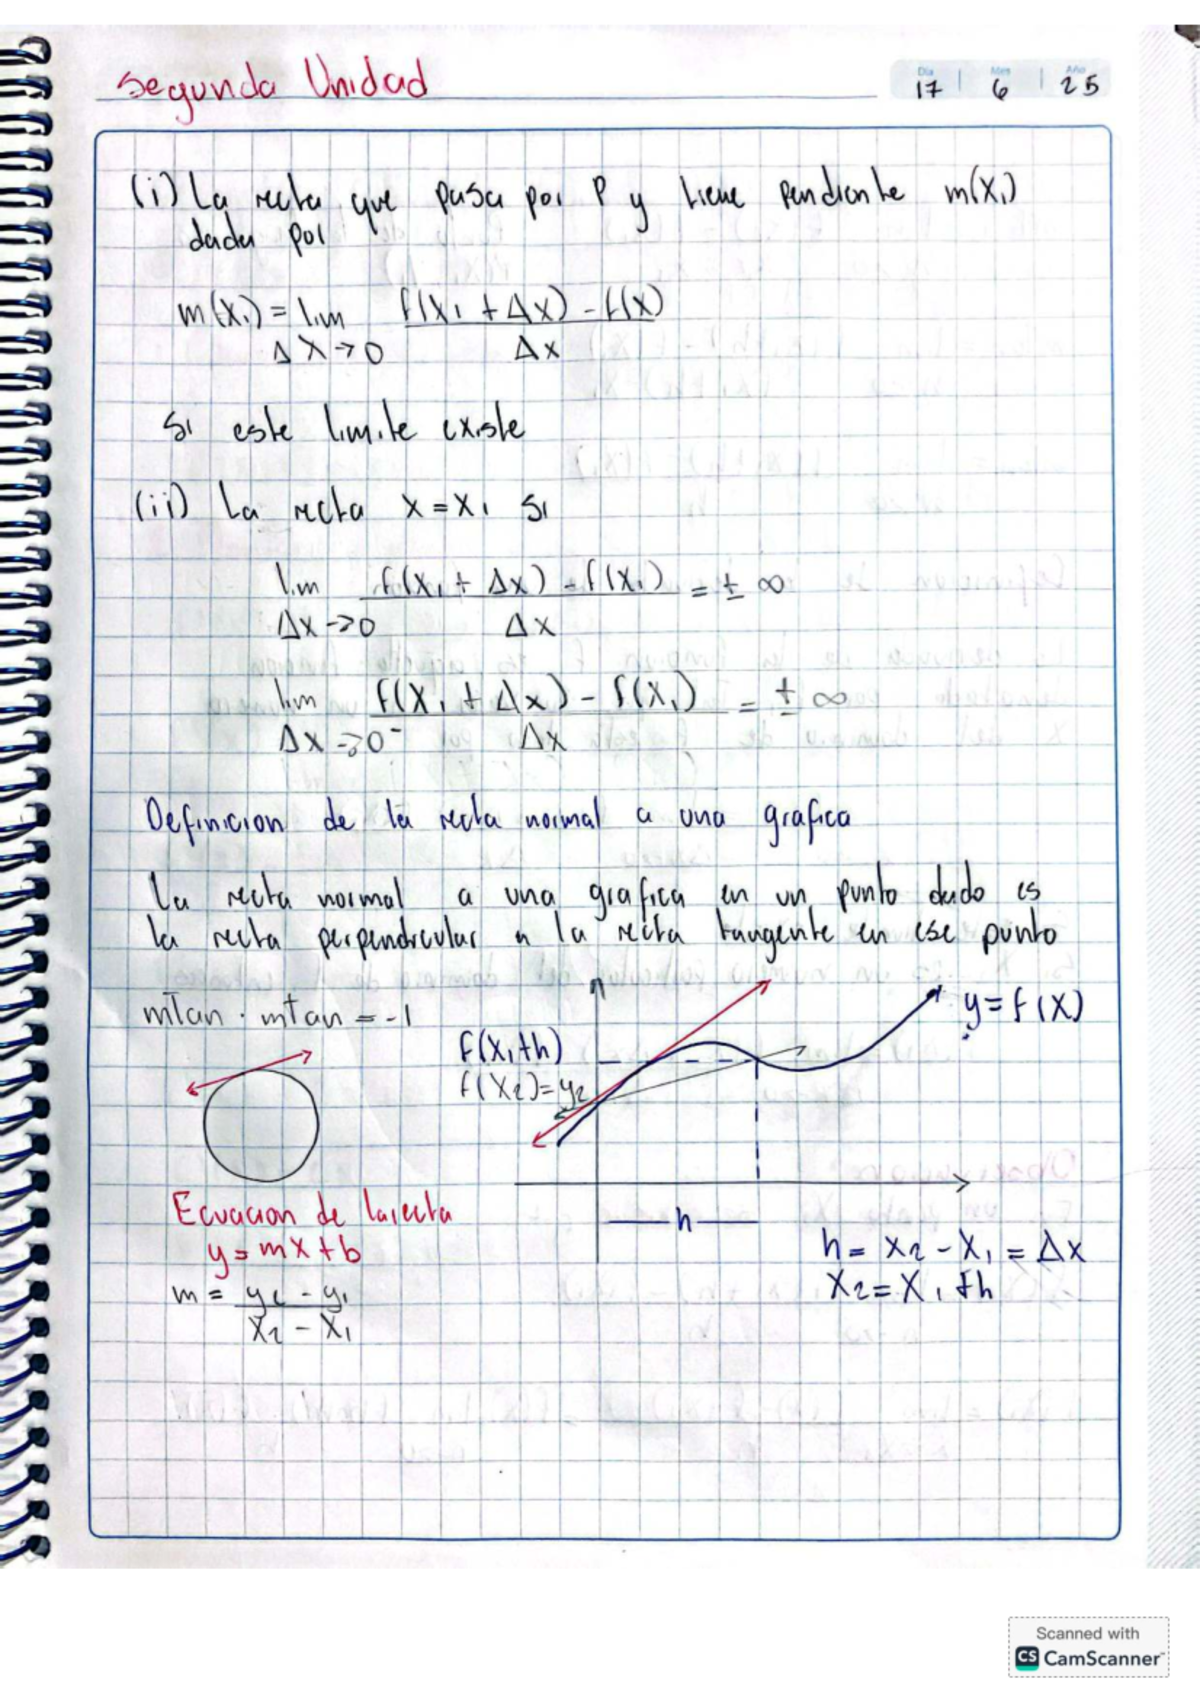 Segunda Unidad
Dia Mes Año
17 6 25
(i) La recta que pasa por P y tiene pendiente m(x₁)
dada por
m(x₁) = lim f(x₁ + Δx) - f(x)
Δx→0 Δx
Si este limite existe
(ii) La recta x = x₁ si
lim f(x₁ + Δx) - f(x₁) = ± ∞
Δx→0 Δx
lim f(x₁ + Δx) - f(x₁) = ± ∞
Δx→0⁻ Δx
Definicion de la recta normal a una grafica
La recta normal a una grafica en un punto dado es
la recta perpendicular a la recta tangente en ese punto
mTan · mTan = -1
f(x₁+h)
f(x₂)=y₂
y=f(x)
Ecuacion de la recta
y = mx + b
m = y₂ - y₁
x₂ - x₁
h
h = x₂ - x₁ = Δx
x₂ = x₁ + h
Scanned with
CS CamScanner